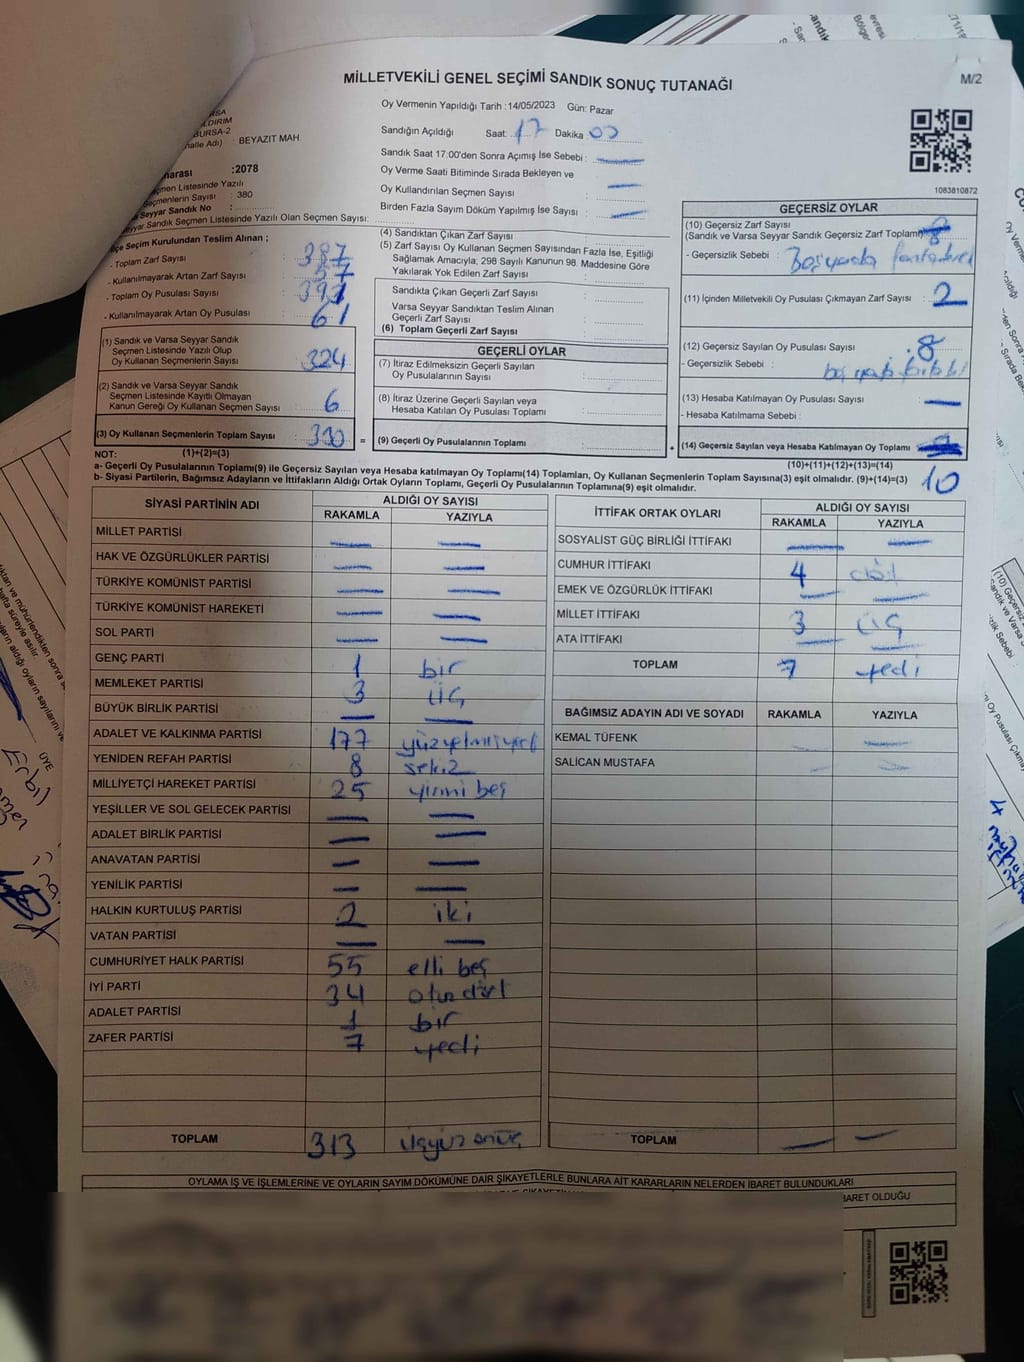 MİLLETVEKİLİ GENEL SEÇİMİ SANDIK SONUÇ TUTANAĞI
M/2
Oy Vermenin Yapıldığı Tarih : 14/05/2023 Gün: Pazar
Sandığın Açıldığı Saat: 17 Dakika 00
Sandık Saat 17:00'den Sonra Açımış İse Sebebi :
Oy Verme Saati Bitiminde Sırada Bekleyen ve
Oy Kullandırılan Seçmen Sayısı
Birden Fazla Sayım Döküm Yapılmış İse Sayısı
BURSA-2
: BEYAZIT MAH
:2078
Seçmen Listesinde Yazılı
Seçmenlerin Sayısı : 380
Seyyar Sandık No :
Seyyar Sandık Seçmen Listesinde Yazılı Olan Seçmen Sayısı:
1083810872
Seçim Kurulundan Teslim Alınan ;
- Toplam Zarf Sayısı : 387
- Kullanılmayarak Artan Zarf Sayısı : 57
- Toplam Oy Pusulası Sayısı
- Kullanılmayarak Artan Oy Pusulası : 61
(1) Sandık ve Varsa Seyyar Sandık
Seçmen Listesinde Yazılı Olup
Oy Kullanan Seçmenlerin Sayısı : 324
(2) Sandık ve Varsa Seyyar Sandık
Seçmen Listesinde Kayıtlı Olmayan
Kanun Gereği Oy Kullanan Seçmen Sayısı : 6
(3) Oy Kullanan Seçmenlerin Toplam Sayısı : 330
(4) Sandıktan Çıkan Zarf Sayısı
(5) Zarf Sayısı Oy Kullanan Seçmen Sayısından Fazla İse, Eşitliği
Sağlamak Amacıyla; 298 Sayılı Kanunun 98. Maddesine Göre
Yakılarak Yok Edilen Zarf Sayısı
Sandıkta Çıkan Geçerli Zarf Sayısı
Varsa Seyyar Sandıktan Teslim Alınan
Geçerli Zarf Sayısı
(6) Toplam Geçerli Zarf Sayısı
GEÇERLİ OYLAR
(7) İtiraz Edilmeksizin Geçerli Sayılan
Oy Pusulalarının Sayısı
(8) İtiraz Üzerine Geçerli Sayılan veya
Hesaba Katılan Oy Pusulası Toplamı
= (9) Geçerli Oy Pusulalarının Toplamı
GEÇERSİZ OYLAR
(10) Geçersiz Zarf Sayısı
(Sandık ve Varsa Seyyar Sandık Geçersiz Zarf Toplamı)
- Geçersizlik Sebebi :
(11) İçinden Milletvekili Oy Pusulası Çıkmayan Zarf Sayısı : 2
(12) Geçersiz Sayılan Oy Pusulası Sayısı : 8
- Geçersizlik Sebebi :
(13) Hesaba Katılmayan Oy Pusulası Sayısı
- Hesaba Katılmama Sebebi :
+ (14) Geçersiz Sayılan veya Hesaba Katılmayan Oy Toplamı
10
NOT: (1)+(2)=(3) (10)+(11)+(12)+(13)=(14)
a- Geçerli Oy Pusulalarının Toplamı(9) ile Geçersiz Sayılan veya Hesaba katılmayan Oy Toplamı(14) Toplamları, Oy Kullanan Seçmenlerin Toplam Sayısına(3) eşit olmalıdır. (9)+(14)=(3)
b- Siyasi Partilerin, Bağımsız Adayların ve İttifakların Aldığı Ortak Oyların Toplamı, Geçerli Oy Pusulalarının Toplamına(9) eşit olmalıdır.
SİYASİ PARTİNİN ADI ALDIĞI OY SAYISI
RAKAMLA YAZIYLA
MİLLET PARTİSİ
HAK VE ÖZGÜRLÜKLER PARTİSİ
TÜRKİYE KOMÜNİST PARTİSİ
TÜRKİYE KOMÜNİST HAREKETİ
SOL PARTİ
GENÇ PARTİ 1 bir
MEMLEKET PARTİSİ 3 üç
BÜYÜK BİRLİK PARTİSİ
ADALET VE KALKINMA PARTİSİ 177 yüzyetmişyedi
YENİDEN REFAH PARTİSİ 8 sekiz
MİLLİYETÇİ HAREKET PARTİSİ 25 yirmi beş
YEŞİLLER VE SOL GELECEK PARTİSİ
ADALET BİRLİK PARTİSİ
ANAVATAN PARTİSİ
YENİLİK PARTİSİ
HALKIN KURTULUŞ PARTİSİ 2 iki
VATAN PARTİSİ
CUMHURİYET HALK PARTİSİ 55 elli beş
İYİ PARTİ 34 otuz dört
ADALET PARTİSİ 1 bir
ZAFER PARTİSİ 7 yedi
TOPLAM 313 üçyüz onüç
İTTİFAK ORTAK OYLARI ALDIĞI OY SAYISI
RAKAMLA YAZIYLA
SOSYALİST GÜÇ BİRLİĞİ İTTİFAKI
CUMHUR İTTİFAKI 4 dört
EMEK VE ÖZGÜRLÜK İTTİFAKI
MİLLET İTTİFAKI 3 üç
ATA İTTİFAKI
TOPLAM 7 yedi
BAĞIMSIZ ADAYIN ADI VE SOYADI RAKAMLA YAZIYLA
KEMAL TÜFENK
SALİCAN MUSTAFA
TOPLAM
OYLAMA İŞ VE İŞLEMLERİNE VE OYLARIN SAYIM DÖKÜMÜNE DAİR ŞİKAYETLERLE BUNLARA AİT KARARLARIN NELERDEN İBARET BULUNDUKLARI
İBARET OLDUĞU